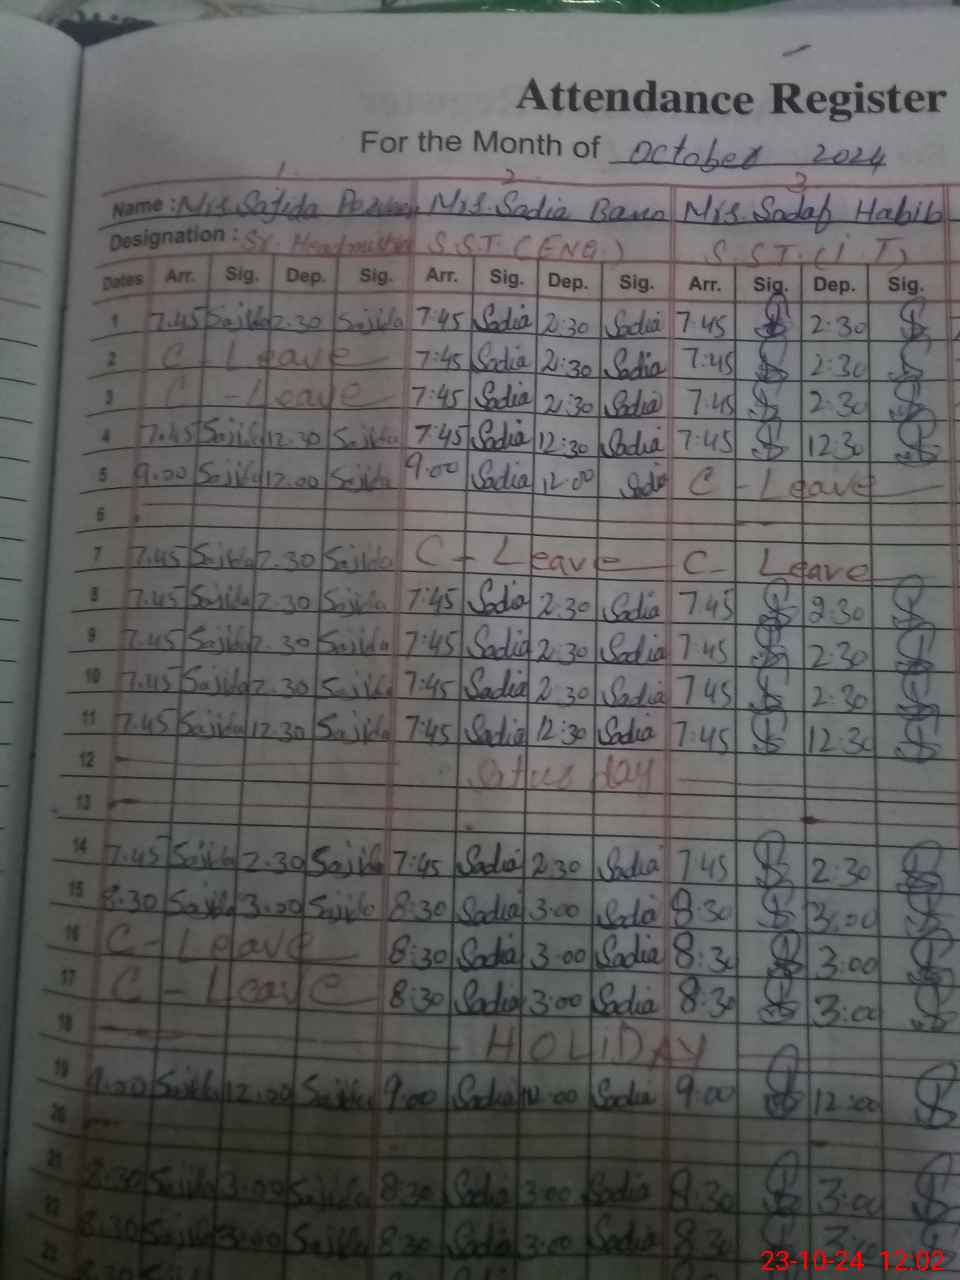 Attendance Register
For the Month of October 2024
1. 2 3
Name : Mrs. Sajida Mrs. Sadia Bano Mrs. Sadaf Habib
Designation : Sr. Headmistress S.S.T. (ENG.) S.S.T. (I.T)
Dates Arr. Sig. Dep. Sig. Arr. Sig. Dep. Sig. Arr. Sig. Dep. Sig.
1 7.45 Sajida 2.30 Sajida 7:45 Sadia 2:30 Sadia 7:45 2:30
2 C - Leave 7:45 Sadia 2:30 Sadia 7:45 2:30
3 C - Leave 7:45 Sadia 2:30 Sadia 7:45 2:30
4 7.45 Sajida 12.30 Sajida 7:45 Sadia 12:30 Sadia 7:45 12:30
5 9.00 Sajida 12.00 Sajida 9:00 Sadia 12:00 Sadia C - Leave
6
7 7.45 Sajida 2.30 Sajida C - Leave C - Leave
8 7.45 Sajida 2.30 Sajida 7:45 Sadia 2:30 Sadia 7:45 2:30
9 7.45 Sajida 2.30 Sajida 7:45 Sadia 2:30 Sadia 7:45 2:30
10 7.45 Sajida 2.30 Sajida 7:45 Sadia 2:30 Sadia 7:45 2:30
11 7.45 Sajida 12.30 Sajida 7:45 Sadia 12:30 Sadia 7:45 12:30
12 day
13
14 7.45 Sajida 2.30 Sajida 7:45 Sadia 2:30 Sadia 7:45 2:30
15 8.30 Sajida 3.00 Sajida 8:30 Sadia 3:00 Sadia 8:30 3:00
16 C - Leave 8:30 Sadia 3:00 Sadia 8:30 3:00
17 C - Leave 8:30 Sadia 3:00 Sadia 8:30 3:00
18 HOLIDAY
19 9.00 Sajida 12.00 Sajida 9:00 Sadia 12:00 Sadia 9:00 12:00
20
21 8:30 Sajida 3:00 Sajida 8:30 Sadia 3:00 Sadia 8:30 3:00
22 8:30 Sajida 3:00 Sajida 8:30 Sadia 3:00 Sadia 8:30 3:00
23
23-10-24 12:02